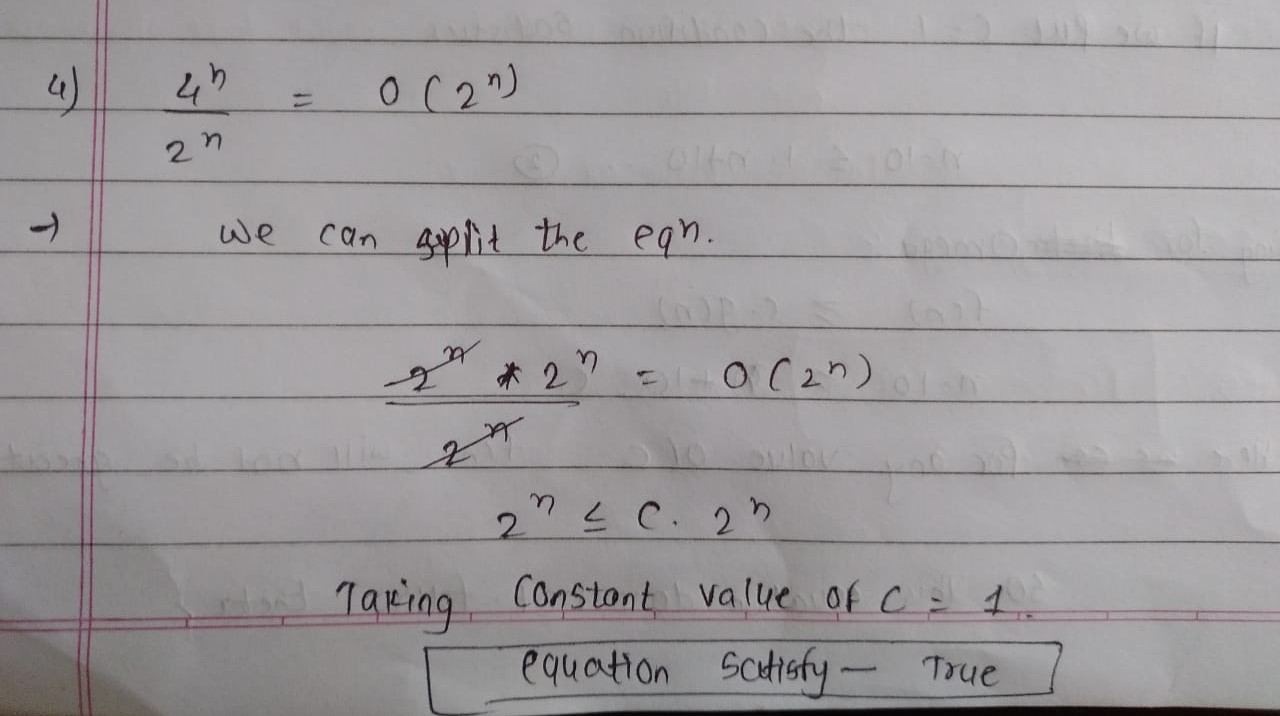 4) 4^n / 2^n = O(2^n)
→ we can split the eqn.
2^n * 2^n / 2^n = O(2^n)
2^n ≤ C. 2^n
Taking Constant value of C = 1.
equation satisfy - True